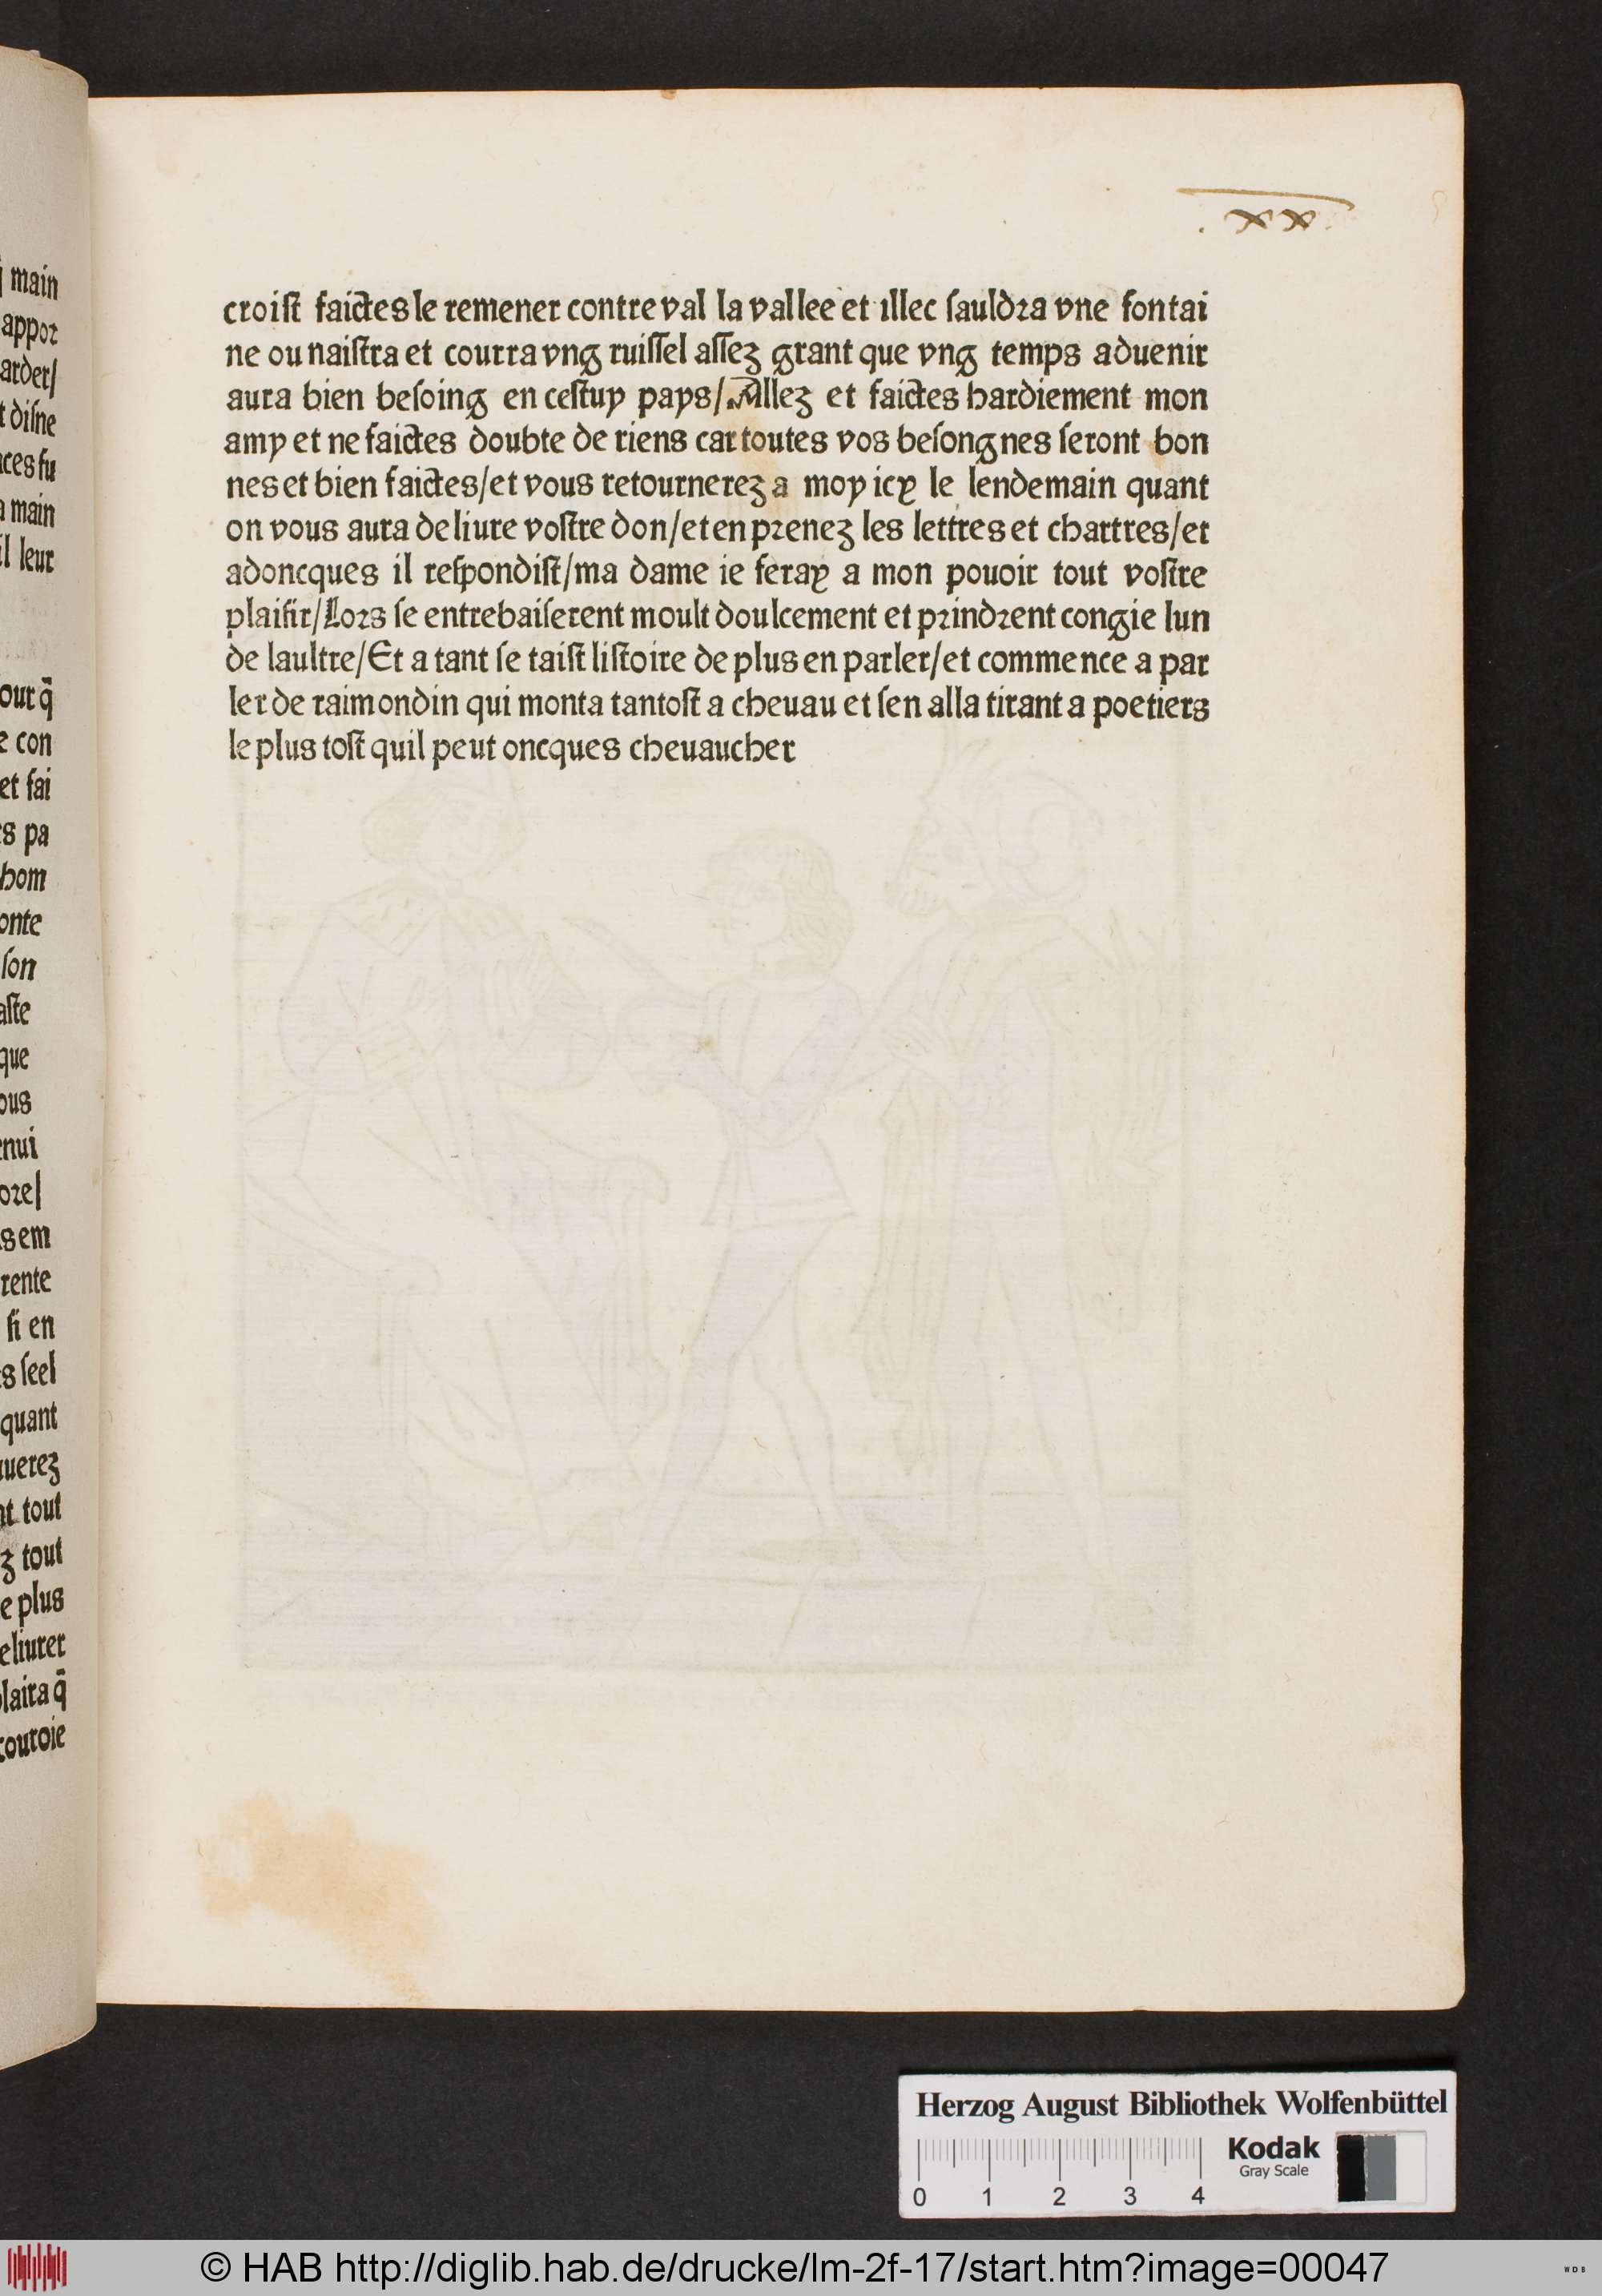 main
appor
arder/
t disne
ces fu
a main
il leur
our q̄
e con
et fai
s pa
hom
onte
son
aste
que
ous
enui
ore/
s em
rente
si en
s seel
quant
uuerez
nt tout
z tout
e plus
eliurer
laira q̄
couroie
. xx.
croist faictes le remener contreval la vallee et illec sauldra vne fontai
ne ou naistra et courra vng ruissel assez grant que vng temps aduenir
aura bien besoing en cestuy pays/Allez et faictes hardiement mon
amy et ne faictes doubte de riens car toutes vos besongnes seront bon
nes et bien faictes/et vous retournerez a moy icy le lendemain quant
on vous aura deliure vostre don/et en prenez les lettres et chartres/et
adoncques il respondist/ma dame ie feray a mon pouoir tout vostre
plaisir/Lors se entrebaiserent moult doulcement et prindrent congie lun
de laultre/Et a tant se taist listoire de plus en parler/et commence a par
ler de raimondin qui monta tantost a cheuau et sen alla tirant a poetiers
le plus tost quil peut oncques cheuaucher
Herzog August Bibliothek Wolfenbüttel
Kodak
Gray Scale
0 1 2 3 4
© HAB http://diglib.hab.de/drucke/lm-2f-17/start.htm?image=00047
WDB